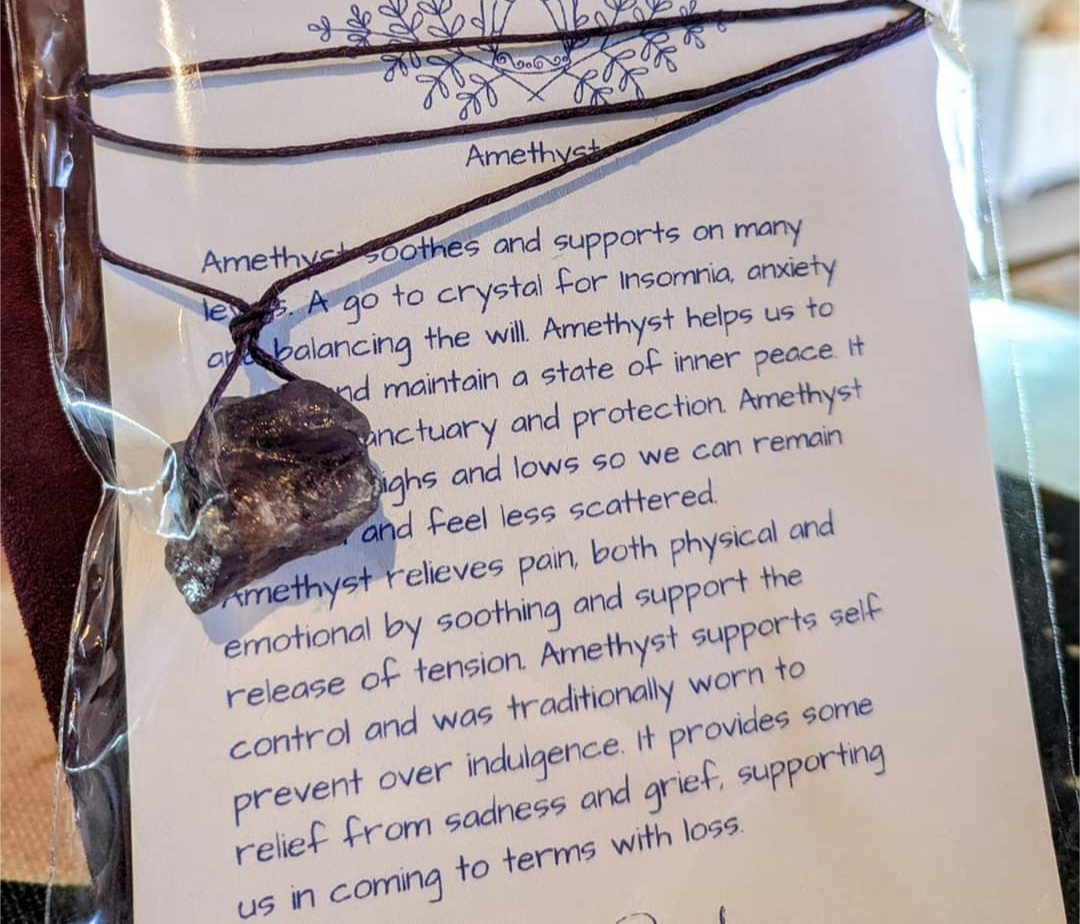 Amethyst
Amethyst soothes and supports on many
A go to crystal for Insomnia, anxiety
and balancing the will. Amethyst helps us to
and maintain a state of inner peace. It
sanctuary and protection. Amethyst
highs and lows so we can remain
and feel less scattered.
Amethyst relieves pain, both physical and
emotional by soothing and support the
release of tension. Amethyst supports self
control and was traditionally worn to
prevent over indulgence. It provides some
relief from sadness and grief, supporting
us in coming to terms with loss.